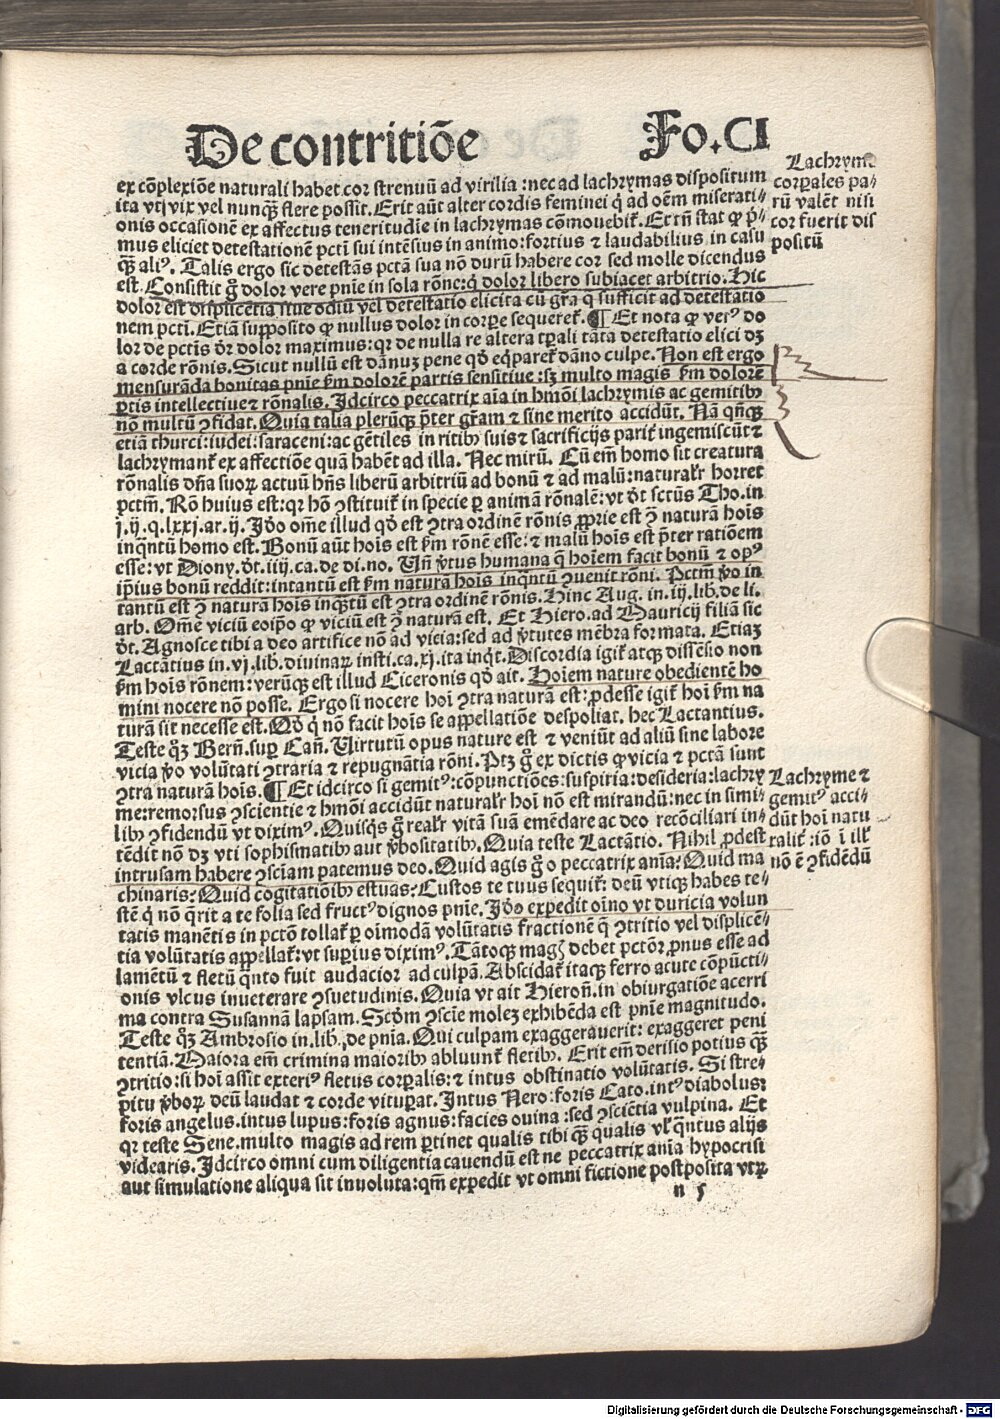 De contritiōe Fo.CI
ex cōplexiōe naturali habet cor strenuū ad virilia:nec ad lachrymas dispositum
ita vtj vix vel nunq̄ȝ flere possit.Erit aūt alter cordis feminei q̄ ad oēm miserati⸗
onis occasionē ex affectus teneritudīe in lachrymas cōmouebiť.Et tn̄ stat ꝙ p̄⸗
mus eliciet detestationē pcti sui intēsius in animo:fortius ⁊ laudabilius in casu
q̄ȝ aliꝰ. Talis ergo sic detestās pctā sua nō durū habere cor sed molle dicendus
est.Consistit g̊ dolor vere pn̄ie in sola rōne:q̇ dolor libero subiacet arbitrio.Hic
dolor est displicentia siue odiū vel detestatio elicita cū gr̄a q̄ sufficit ad detestatio
nem pcti.Etiā supposito ꝙ nullus dolor in corpe sequereť.¶Et nota ꝙ verꝰ do
lor de pctīs dr̄ dolor maximus:qr de nulla re altera tpali tāta detestatio elici dȝ
a corde rōnis.Sicut nullū est dānuȝ pene qd̓ eq̇pareť dāno culpe. Non est ergo
mensurāda bonitas pn̄ie ẜm dolorē partis sensitiue:sȝ multo magis ẜm dolorē
ꝑtis intellectiue⁊ rōnalis. Idcirco peccatrix aīa in hmōi lachrymis ac gemitibꝰ
nō multū ꝯfidat.Quia talia plerūqȝ p̄ter gr̄am ⁊ sine merito accidūt. Nā qn̄qȝ
etiā thurci:iudei:saraceni:ac gētiles in ritibꝰ suis⁊ sacrificijs pariť ingemiscūt⁊
lachrymanť ex affectiōe quā habēt ad illa. Nec mirū. Cū em̄ homo sit creatura
rōnalis dn̄a suoꝝ actuū hn̄s liberū arbitriū ad bonū ⁊ ad malū:naturalr̄ horret
pctm̄. Rō huius est:qr hō ꝯstituiť in specie ꝑ animā rōnalē:vt dr̄ sctūs Tho.in
j.ij.q.lxxj.ar.ij. Iđo ome illud qd̓ est ꝯtra ordinē rōnis ꝓprie est ꝯ̄ naturā hoīs
inq̄ntū homo est.Bonū aūt hoīs est ẜm rōnē esse:⁊ malū hoīs est p̄ter ratiōem
esse:vt Diony.dt̓.iiij.ca.de di.no. Un̄ v̓tus humana q̄ hoīem facit bonū ⁊ opꝰ
ip̄ius bonū reddit:intantū est ẜm naturā hoīs inq̄ntū ꝯuenit rōni. Pctm̄ v̓o in
tantū est ꝯ̄ naturā hoīs inq̄tū est ꝯtra ordinē rōnis. Hinc Aug. in.iij.lib.de li.
arb. Om̄e viciū eoip̄o ꝙ viciū est ꝯ̄ naturā est. Et Hiero.ad Mauricij filiā sic
dt̓. Agnosce tibi a deo artifice nō ad vicia:sed ad v̓tutes mēbra formata. Etiaȝ
Lactātius in.vj.lib.diuinaꝝ insti.ca.xj.ita inqt̓.Discordia igiť atqȝ dissēsio non
ẜm hoīs rōnem:verūqȝ est illud Ciceronis qd̓ ait. Hoīem nature obedientē ho
mini nocere nō posse. Ergo si nocere hoī ꝯtra naturā est:ꝓdesse igiť hoī ẜm na
turā sit necesse est.Qd̓ q̇ nō facit hoīs se appellatiōe despoliat. hec Lactantius.
Teste qȝ̄ Bern̄.suꝑ Can̄. Virtutū opus nature est ⁊ veniūt ad aliū sine labore
vicia v̓o volūtati ꝯtraria ⁊ repugnātia rōni. Ptȝ g̊ ex dictis ꝙ vicia ⁊ pctā sunt
ꝯtra naturā hoīs.¶Et idcirco si gemitꝰ:cōpunctiōes:suspiria:desideria:lachry
me:remorsus ꝯscientie ⁊ hmōi accidūt naturalr̄ hoī nō est mirandū:nec in simi⸗
libꝰ ꝯfidendū vt diximꝰ. Quisq̇s g̊ realr̄ vitā suā emēdare ac deo recōciliari in⸗
tēdit nō dȝ vti sophismatibꝰ aut v̓bositatibꝰ.Quia teste Lactātio. Nihil ꝓdest
intrusam habere ꝯsciam patemus deo.Quid agis g̊ o peccatrix anīa:Quid ma
chinaris:Quid cogitatiōibꝰ estuas:Custos te tuus sequiť: deū vtiqȝ habes te⸗
stē q̇ nō q̄rit a te folia sed fructꝰ dignos pn̄ie. Iđo expedit oīno vt duricia volun
tatis manētis in pctō tollaꝛ̓ ꝑ oimodā volūtatis fractionē q̄ ꝯtritio vel displicē⸗
tia volūtatis appellať:vt supius diximꝰ. Tātoqȝ magꝭ debet pctōꝛ ꝓnus esse ad
lamētū ⁊ fletū q̄nto fuit audacior ad culpā.Abscidať itaqȝ ferro acute cōpūcti⸗
onis vlcus inueterare ꝯsuetudinis.Quia vt ait Hieron̄.in obiurgatiōe acerri
ma contra Susannā lapsam.Scd̓m ꝯscie moleȝ exhibēda est pn̄ie magnitudo.
Teste qȝ̄ Ambrosio in.lib.de pn̄ia.Qui culpam exaggerauerit: exaggeret peni
tentiā.Maiora em̄ crimina maioribꝰ abluunť fletibꝰ. Erit em̄ derisio potius q̄ȝ
ꝯtritio:si hoī assit exteriꝰ fletus corpalis:⁊ intus obstinatio volūtatis. Si stre⸗
pitu v̓boꝝ deū laudat ⁊ corde vitupat. Intus Nero:foris Cato.intꝰ diabolus:
foris angelus.intus lupus:foris agnus:facies ouina:sed ꝯsciētia vulpina. Et
qr teste Sene.multo magis ad rem ꝑtinet qualis tibi q̄ȝ qualis vl̓ q̄ntus alijs
videaris.Idcirco omni cum diligentia cauendū est ne peccatrix anīa hypocrisi
aut simulatione aliqua sit inuoluta:qm̄ expedit vt omni fictione postposita vtꝝ
n 5
Lachryme
corpales pa⸗
rū valēt nisi
cor fuerit dis
positū
Lachryme ⁊
gemitꝰ acci⸗
dūt hoī natu
raliť:iō ī ill̓
nō ē ꝯfidēdū
Digitalisierung gefördert durch die Deutsche Forschungsgemeinschaft - DFG